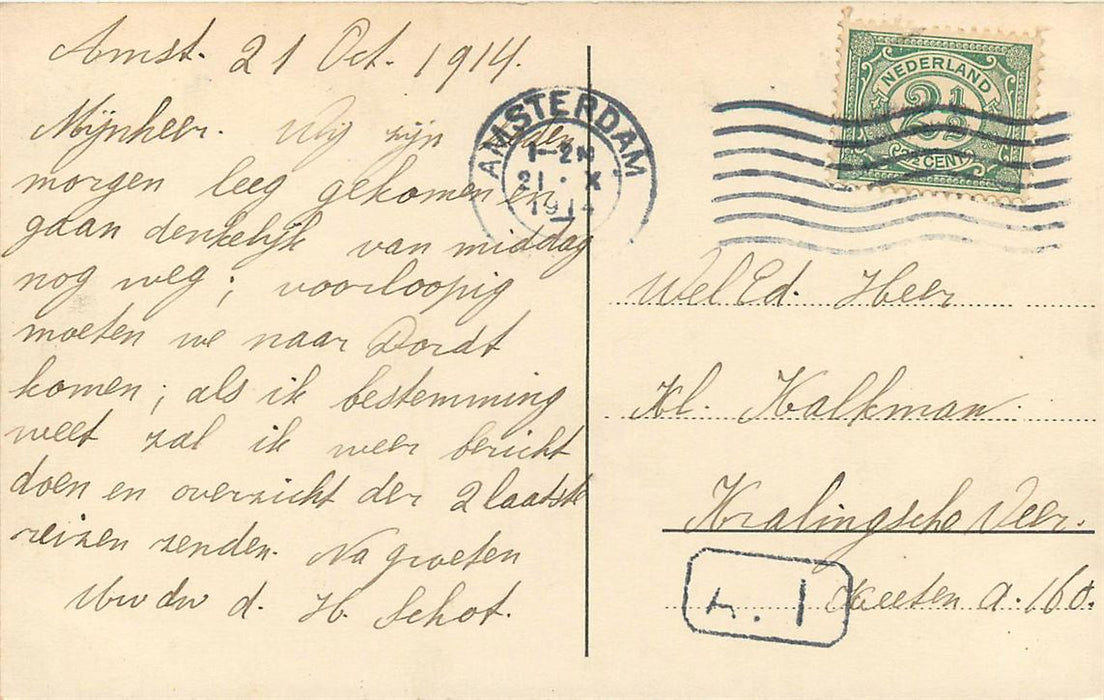 Amst. 21 Oct. 1914.
Mijnheer. Wij zijn heden
morgen leeg gekomen en
gaan denkelijk van middag
nog weg; voorloopig
moeten we naar Dordt
komen; als ik bestemming
weet zal ik weer bericht
doen en overzicht der 2 laatste
reizen zenden. Na groeten
Uw dw d. H. Schot.
AMSTERDAM
1-2N
21 . X
1914
NEDERLAND
2½
2½ CENT
WelEd. Heer
Kl. Kalkman
Kralingsche Veer.
a. 160.
1